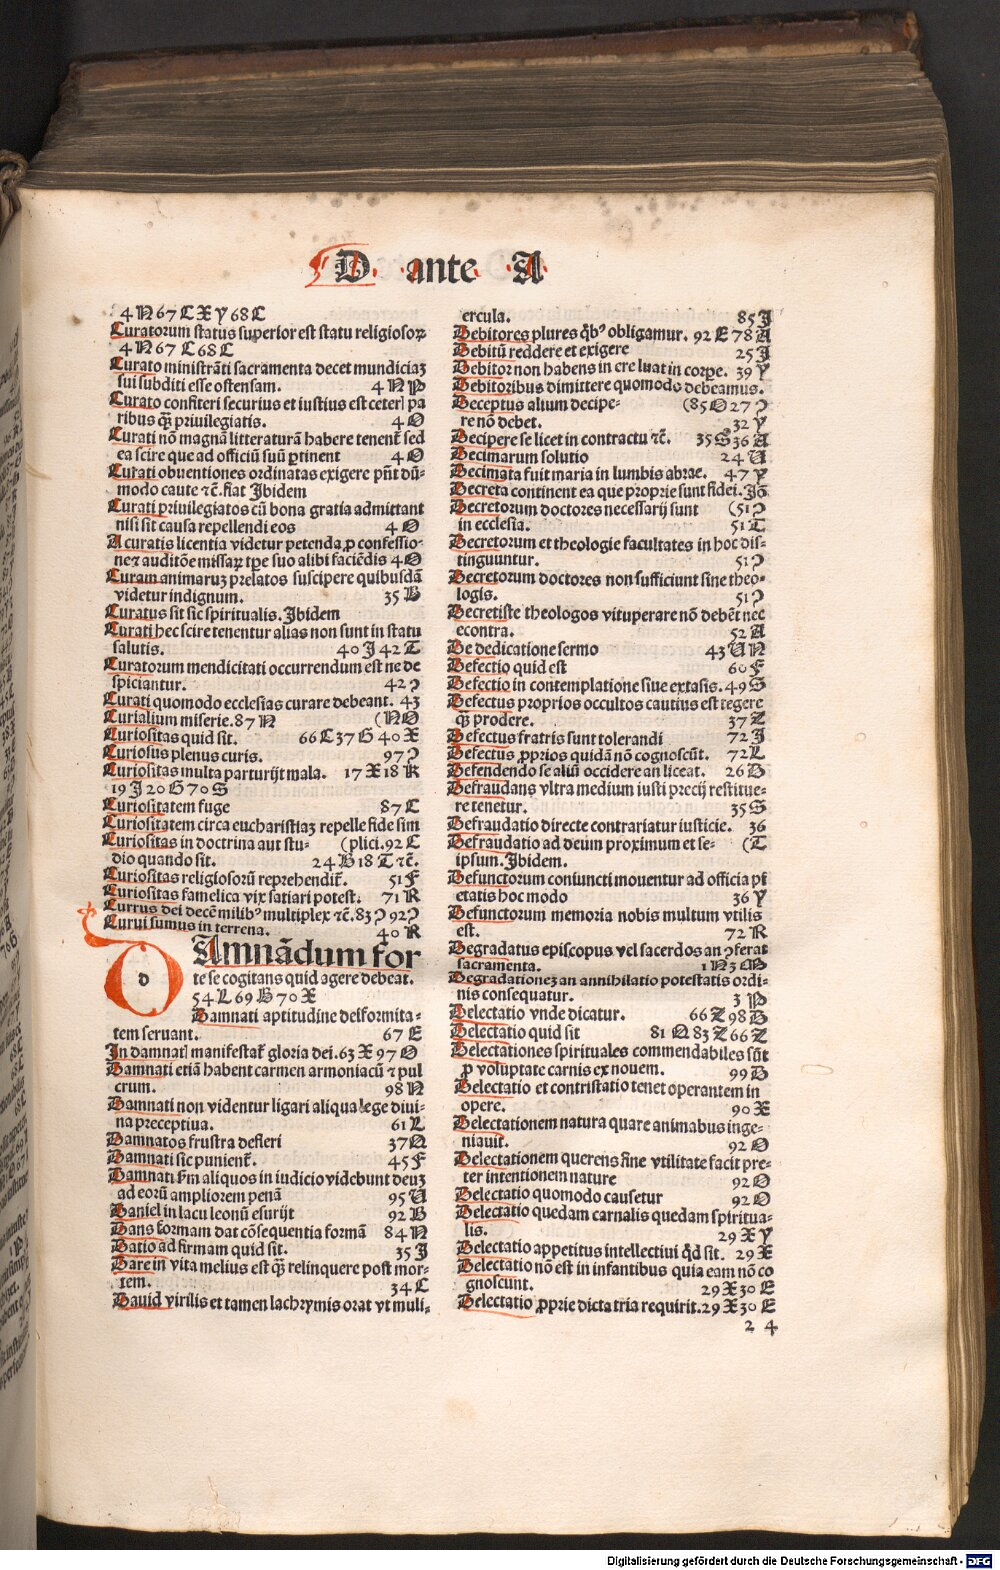 D. ante A
4 N 67 C X Y 68 C
Curatorum status superior est statu religiosoꝝ
4 N 67 C 68 C
Curato ministrāti sacramenta decet mundiciaꝫ
sui subditi esse ostensam. 4 N P
Curato confiteri securius et iustius est ceteꝭ pa
ribus qꝫ̄ priuilegiatis. 4 O
Curati nō magnā litteraturā habere tenent᷑ sed
ea scire que ad officiū suū ꝑtinent 4 O
Curati obuentiones ordinatas exigere pn̄t dū-
modo caute ⁊c̄. fiat Ibidem
Curati priuilegiatos cū bona gratia admittant
nisi sit causa repellendi eos 4 O
A curatis licentia videtur petenda ꝓ confessio-
ne ⁊ auditōe missaꝝ tpe suo alibi faciēdis 4 O
Curam animaruꝫ prelatos suscipere quibusdā
videtur indignum. 35 B
Curatus sit sic spiritualis. Ibidem
Curati hec scire tenentur alias non sunt in statu
salutis. 40 J 42 T
Curatorum mendicitati occurrendum est ne de
spiciantur. 42 ?
Curati quomodo ecclesias curare debeant. 43
Curialium miserie. 87 N (N O
Curiositas quid sit. 66 C 37 G 40 X
Curiosus plenus curis. 97 ?
Curiositas multa parturijt mala. 17 X 18 R
19 J 20 G 70 S
Curiositatem fuge 87 C
Curiositatem circa eucharistiaꝫ repelle fide sim
Curiositas in doctrina aut stu- (plici. 92 C
dio quando sit. 24 B 18 T ⁊c̄.
Curiositas religiosorū reprehendit᷑. 51 F
Curiositas famelica vix satiari potest. 71 R
Currus dei decē milibꝰ multiplex ⁊c̄. 83 ? 92 ?
Curui sumus in terrena. 40 R
d
DAmnādum for
te se cogitans quid agere debeat.
54 L 69 B 70 X
Damnati aptitudine deiformita-
tem seruant. 67 E
In damnatꝭ manifestat᷑ gloria dei. 63 X 97 O
Damnati etiā habent carmen armoniacū ⁊ pul
crum. 98 N
Damnati non videntur ligari aliqua lege diui-
na preceptiua. 61 L
Damnatos frustra defleri 37 Q
Damnati sic punient᷑. 45 F
Damnati sm̄ aliquos in iudicio videbunt deuꝫ
ad eorū ampliorem penā 95 U
Daniel in lacu leonū esurijt 92 B
Dans formam dat cōsequentia formā 84 N
Datio ad firmam quid sit. 35 J
Dare in vita melius est qꝫ̄ relinquere post mor-
tem. 34 C
Dauid virilis et tamen lachrymis orat vt muli-
ercula. 85 J
Debitores plures qb̄ꝰ obligamur. 92 E 78 A
Debitū reddere et exigere 25 J
Debitor non habens in ere luat in corꝑe. 39 Y
Debitoribus dimittere quomodo debeamus.
Deceptus alium decipe- (85 O 27 ?
re nō debet. 32 Y
Decipere se licet in contractu ⁊c̄. 35 S 36 A
Decimarum solutio 24 U
Decimata fuit maria in lumbis abrae. 47 Y
Decreta continent ea que proprie sunt fidei. Jō
Decretorum doctores necessarij sunt (51 ?
in ecclesia. 51 T
Decretorum et theologie facultates in hoc dis-
tinguuntur. 51 ?
Decretorum doctores non sufficiunt sine theo-
logis. 51 ?
Decretiste theologos vituperare nō debēt nec
econtra. 52 A
De dedicatione sermo 43 U N
Defectio quid est 60 F
Defectio in contemplatione siue extasis. 49 S
Defectus proprios occultos cautius est tegere
qꝫ̄ prodere. 37 Z
Defectus fratris sunt tolerandi 72 J
Defectus ꝓprios quidā nō cognoscūt. 72 L
Defendendo se aliū occidere an liceat. 26 D
Defraudans vltra medium iusti precij restitue-
re tenetur. 35 S
Defraudatio directe contrariatur iusticie. 36
Defraudatio ad deum proximum et se- (T
ipsum. Ibidem.
Defunctorum coniuncti mouentur ad officia pi
etatis hoc modo 36 Y
Defunctorum memoria nobis multum vtilis
est. 72 R
Degradatus episcopus vel sacerdos an ꝯferat
sacramenta. 1 N 3 M
Degradationeꝫ an annihilatio potestatis ordi-
nis consequatur. 3 P
Delectatio vnde dicatur. 66 Z 98 G
Delectatio quid sit 81 Q 83 Z 66 Z
Delectationes spirituales commendabiles sūt
ꝓ voluptate carnis ex nouem. 99 G
Delectatio et contristatio tenet operantem in
opere. 90 X
Delectationem natura quare animabus inge-
niauit. 92 O
Delectationem querens sine vtilitate facit pre-
ter intentionem nature 92 O
Delectatio quomodo causetur 92 O
Delectatio quedam carnalis quedam spiritua-
lis. 29 X Y
Delectatio appetitus intellectiui qd̄ sit. 29 X
Delectatio nō est in infantibus quia eam nō co
gnoscunt. 29 X 30 E
Delectatio ꝓprie dicta tria requirit. 29 X 30 E
2 4
Digitalisierung gefördert durch die Deutsche Forschungsgemeinschaft - DFG